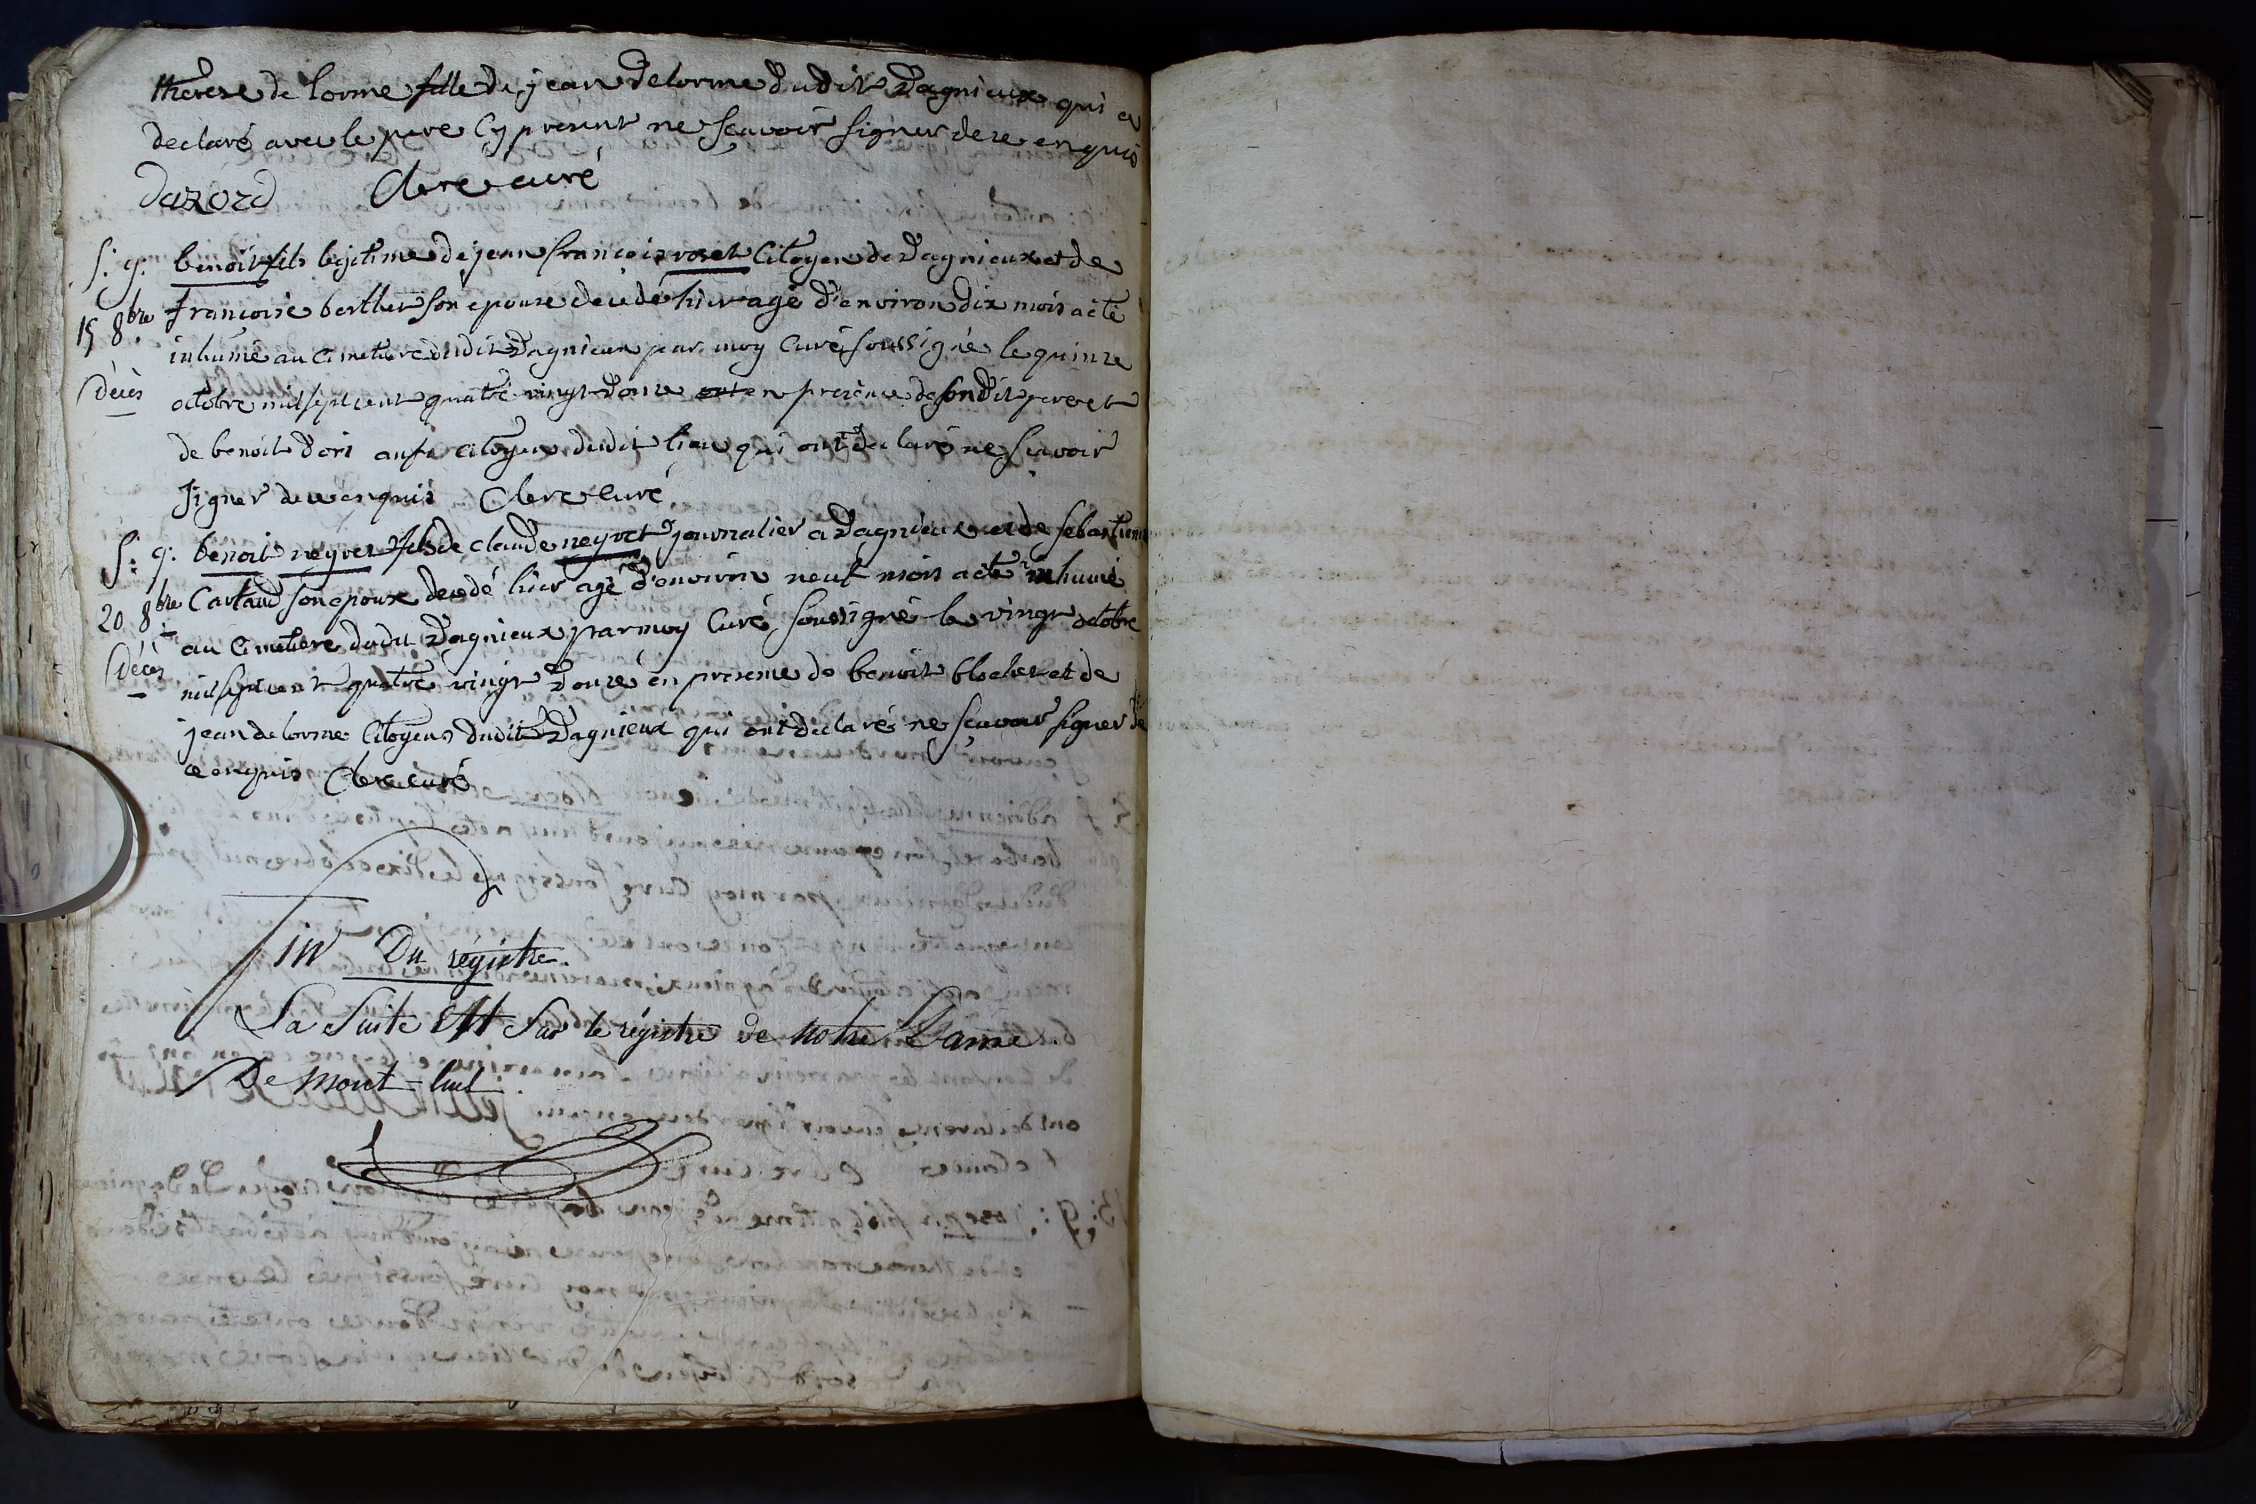 therese de lorme fille de jean delorme dudit Dagnieux qui a
declaré avec le pere cy present ne sçavoir signer de ce enquis
Dazord Clerc curé
S. g. benoit fils legitime de jean francois roset Citoyen de Dagnieux et de
15 8bre francoise berthet son epouse decedé hier agé d'environ dix mois a èté
inhumé au cimetiere dudit Dagnieux par moy Curé soussigné le quinze
Décès octobre mil sept cent quatre vingt Douze en presence de son Dit pere et
de benoit Dori citoyen dudit lieu qui ont declaré ne sçavoir
signer de ce enquis Clerc Curé
S. g. benoit neyret fils de claude neyret journalier a Dagnieux et de sebastienne
20 8bre Cartaud son epouse decedé hier agé d'environ neuf mois a èté inhumé
au Cimetiere dudit Dagnieux par moy Curé soussigné le vingt octobre
Décès mil sept cent quatre vingt Douze en presence de benoit blochet et de
jean de lorme Citoyens dudit Dagnieux qui ont declaré ne sçavoir signer de
ce enquis Clerc curé
fin Du régistre.
La Suite Est Sur le régistre de Notre Dame
De Mont-luel.